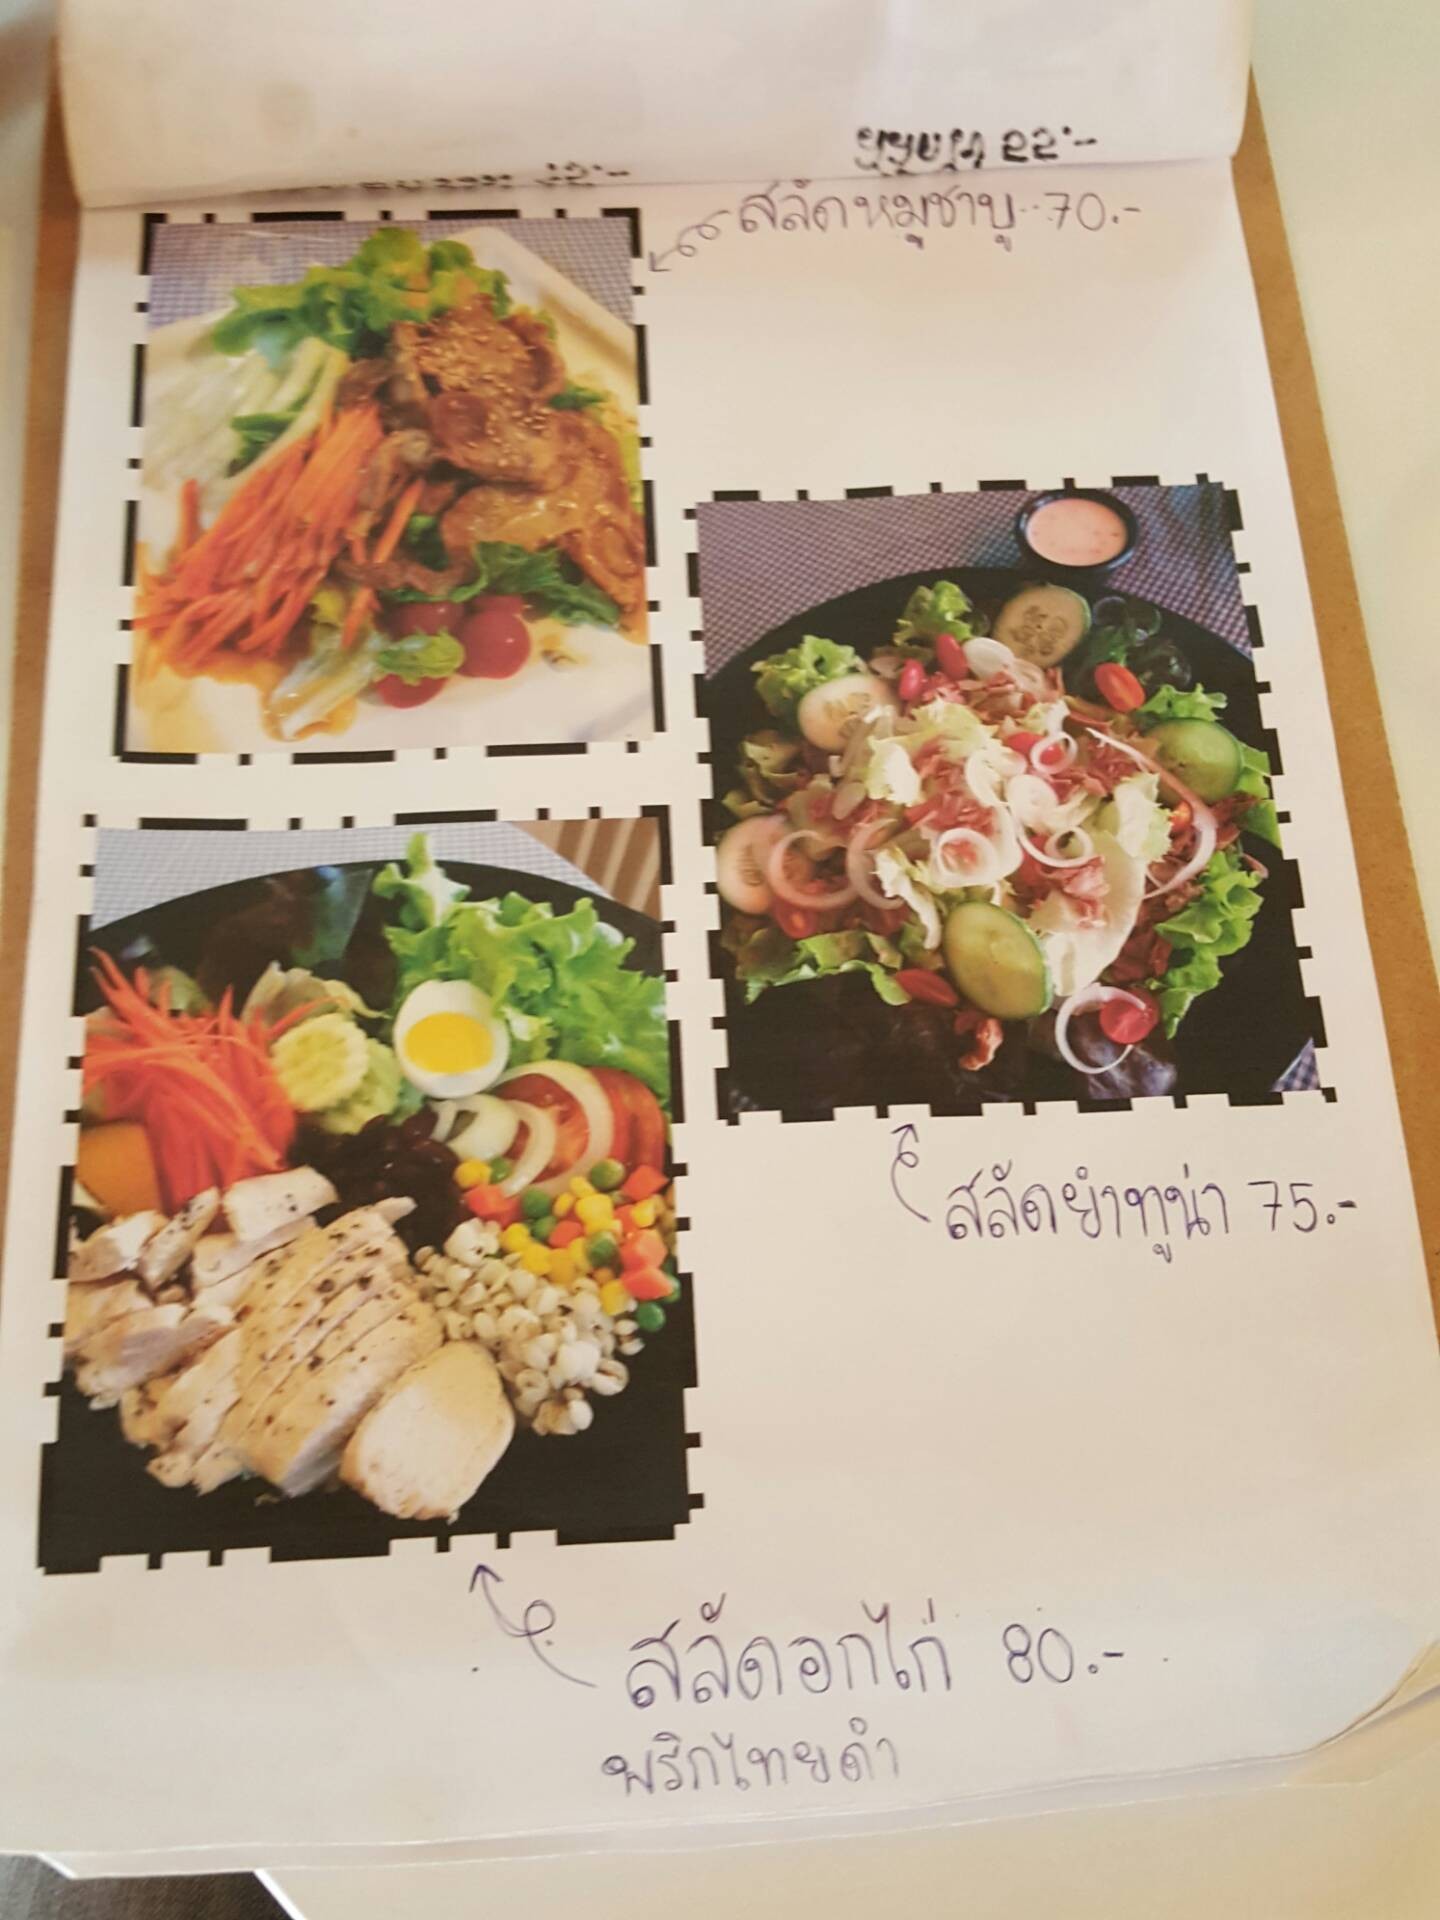 สลัดหมูชาบู 70.-
สลัดยำทูน่า 75.-
สลัดอกไก่ 80.-
พริกไทยดำ